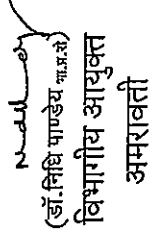 (डॉ.निधि पाण्डेय भा.प्र.से)
विभागीय आयुक्त
अमरावती